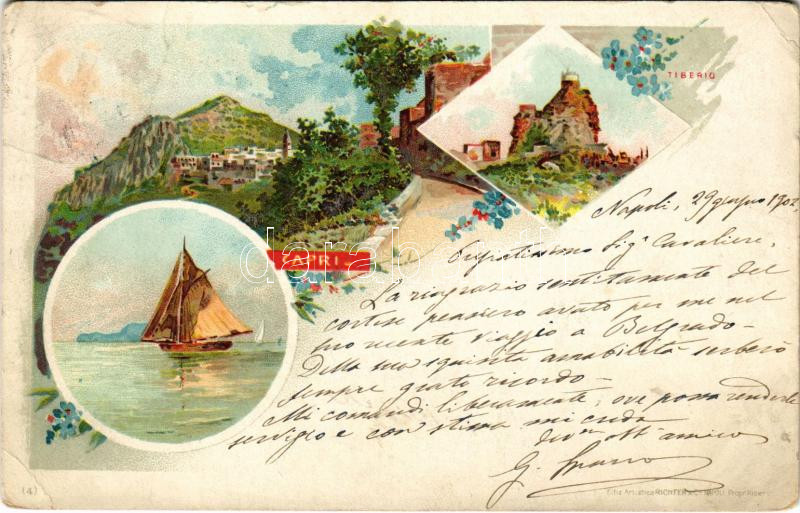 TIBERIO
CAPRI
Napoli, 29 giugno 1902,
Pregiatissimo Sigr Cavaliere,
La ringrazio sentitamente del
cortese pensiero avuto per me nel
suo recente viaggio a Belgrado -
Della sua squisita amabilità serberò
sempre grato ricordo -
Mi comandi liberamente, ove possa renderle
servigio e con stima mi creda
dev.mo obb. amico
G.
(4)
Edit. Artistica RICHTER & Co NAPOLI Propr. Riser.
darabanth